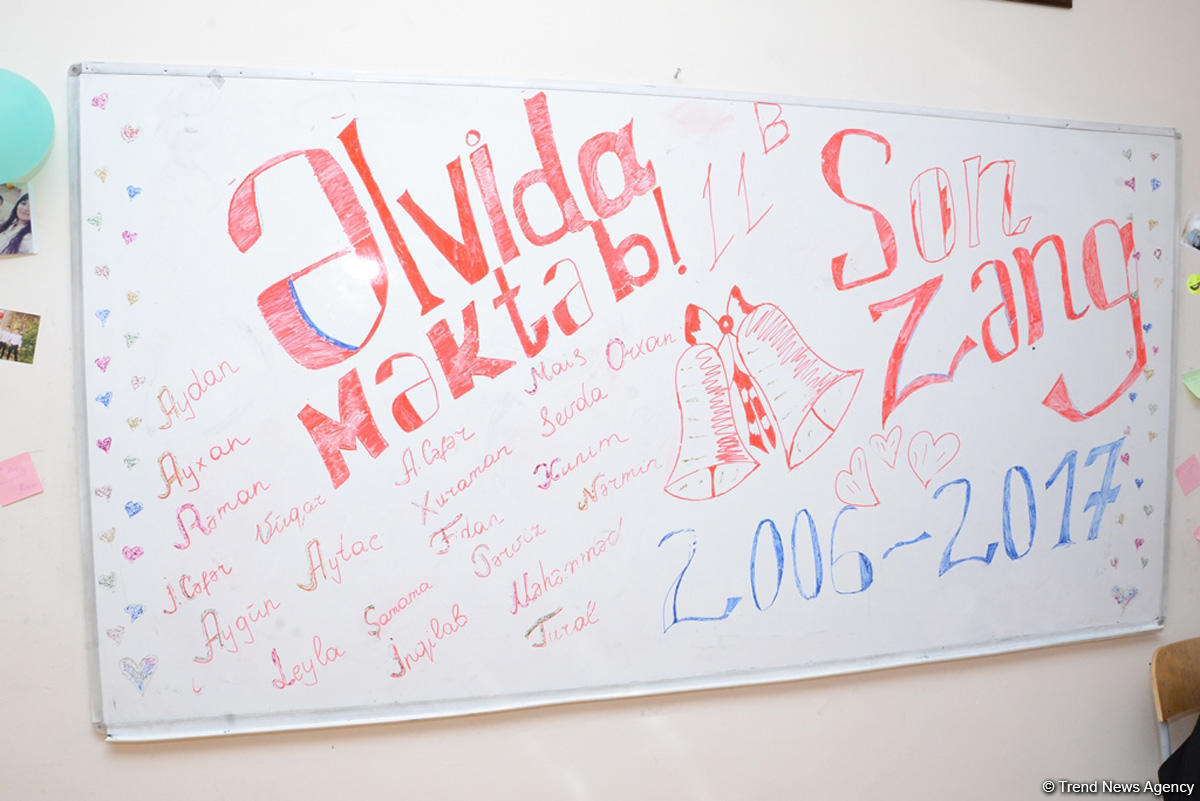 Əlvida
məktəb!
11 B
Son
Zəng
2006-2017
Aydan
Ayxan
Rəman
Vüqar
İ.Cəfər
Aygün
Leyla
Aytac
A.Cəfər
Xuraman
Fidan
Şamama
İnqilab
Mais
Orxan
Sevda
Xanım
Nərmin
Pərviz
Məhəmməd
Tural
© Trend News Agency